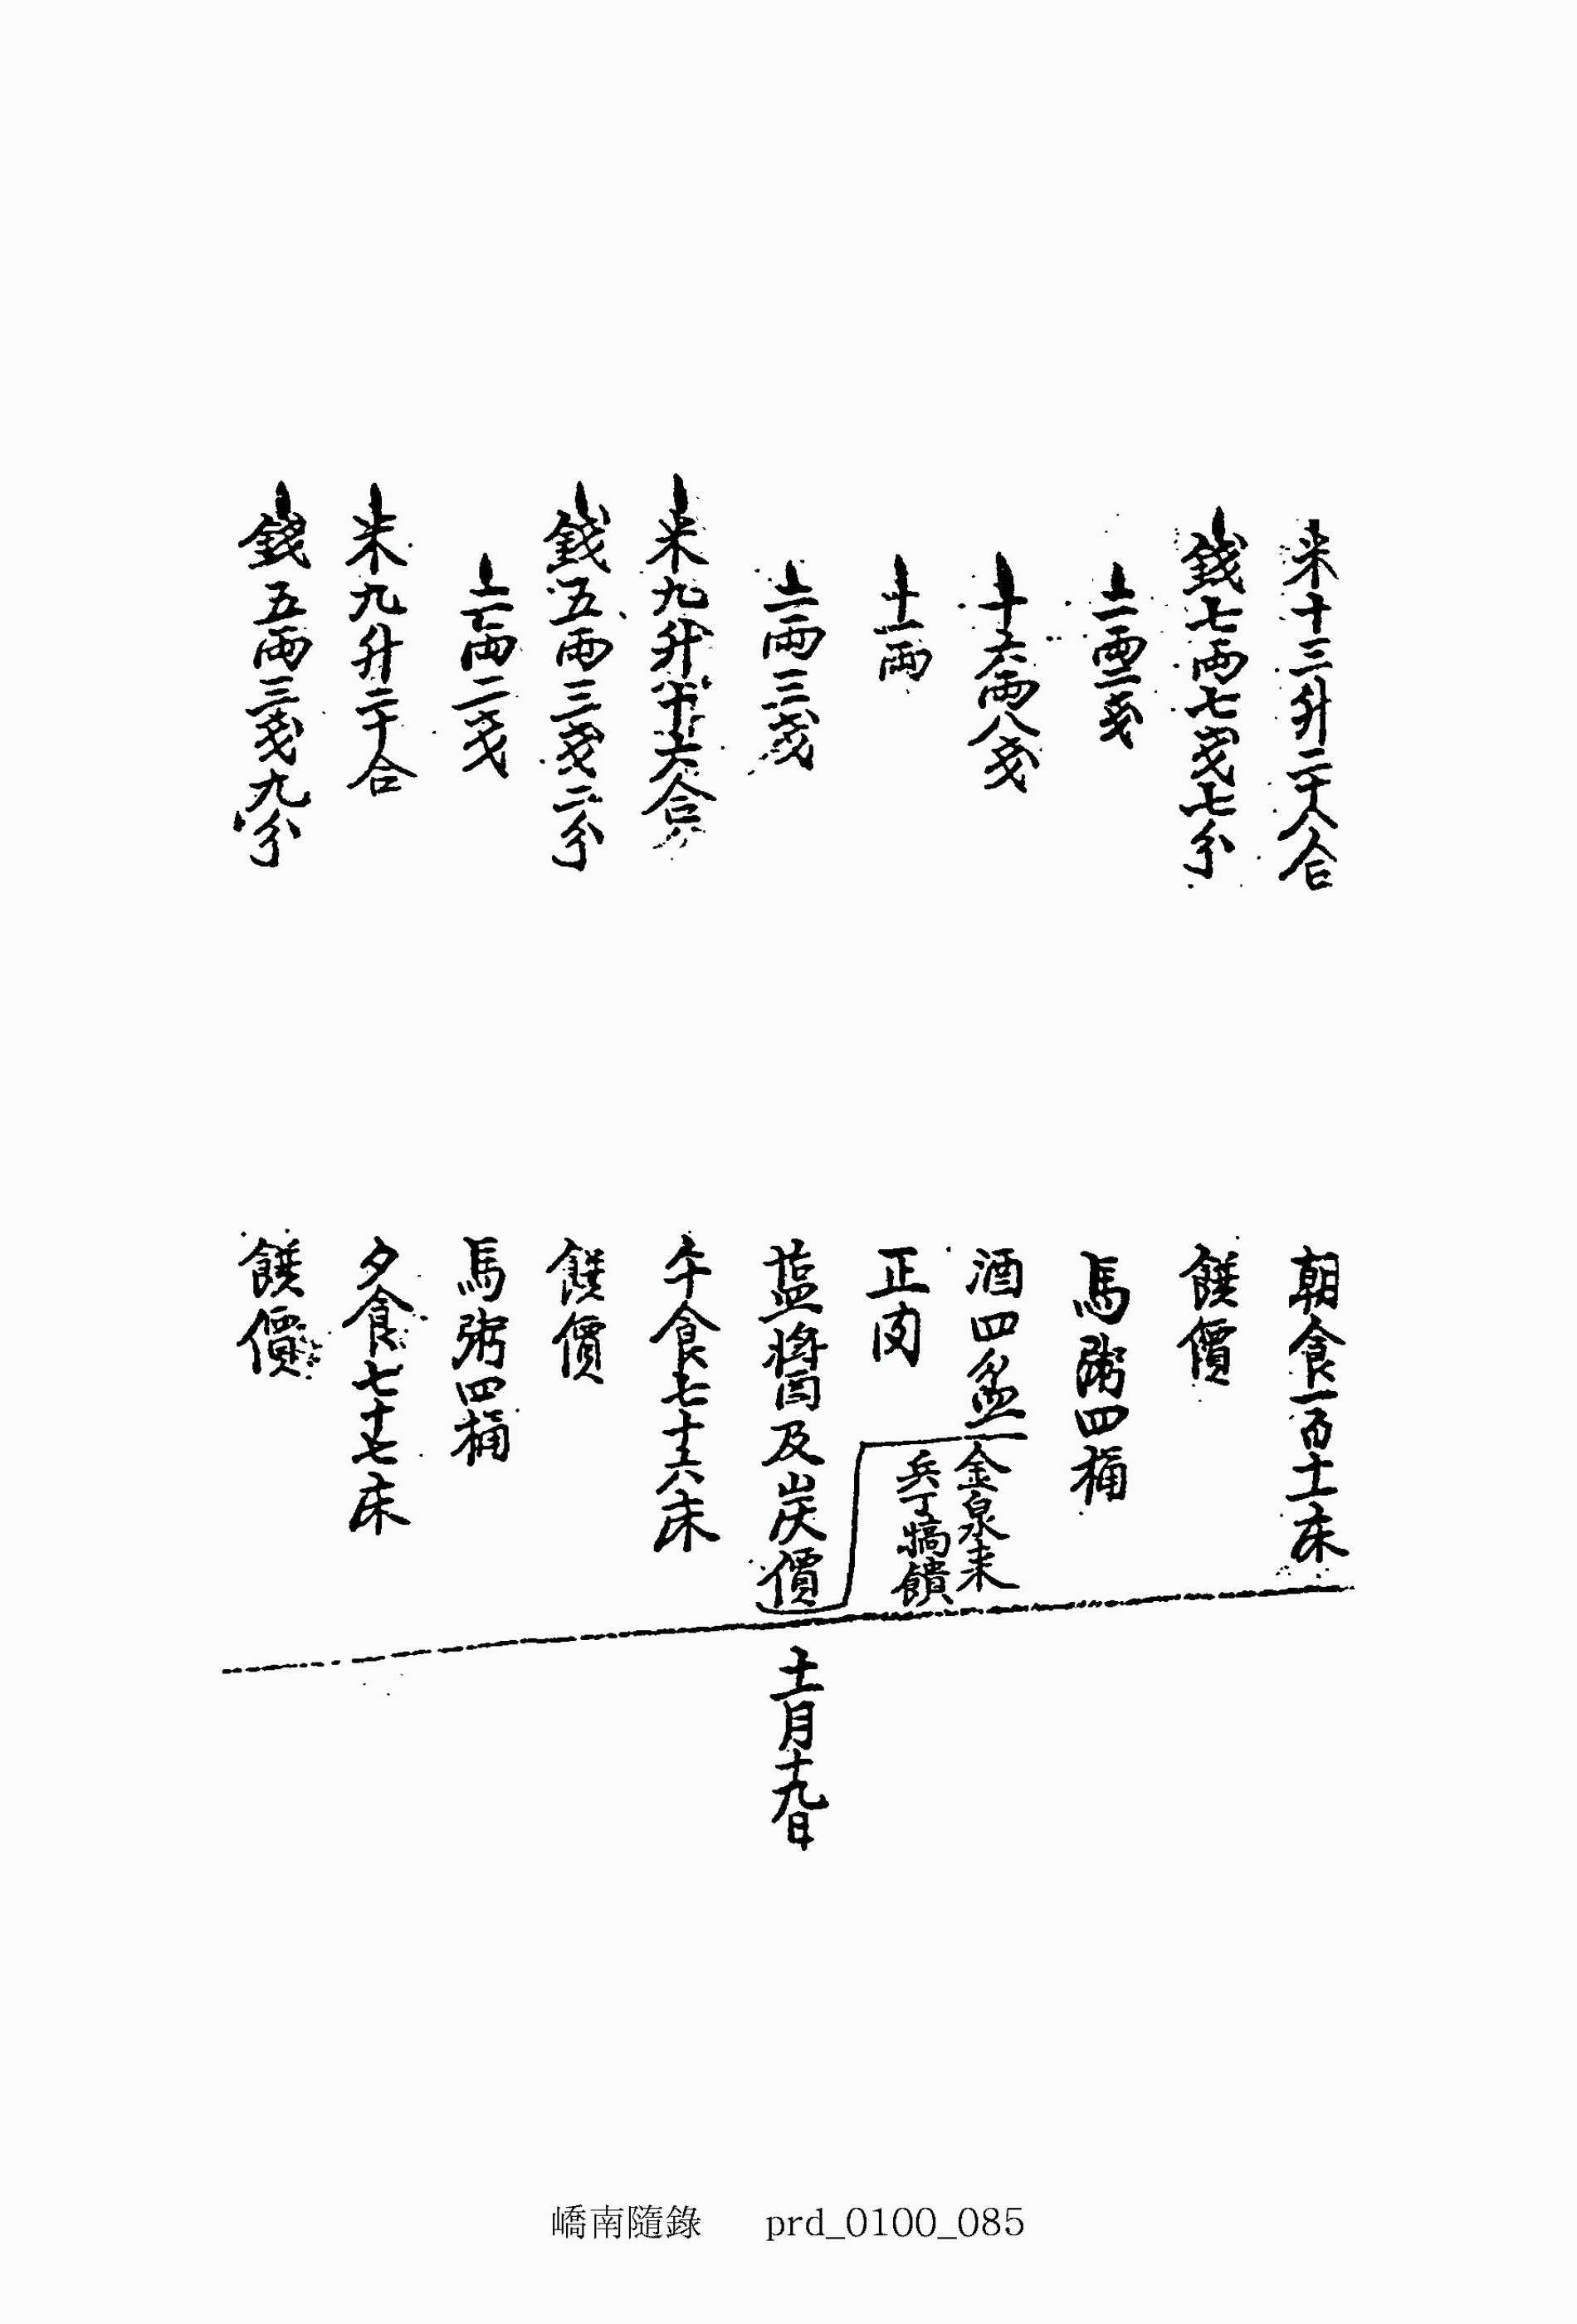 米十三升二十八合 朝食一百十一床
錢七兩七戔七分 饌價
二兩二戔 馬粥四桶
十六兩八戔 酒四盆
十一兩 正肉
金泉来
兵丁犒饋
二兩三戔 塩醬及炭價
十一月十九日
米九升十六合 午食七十六床
錢五兩三戔二分 饌價
二兩二戔 馬粥四桶
米九升二十合 夕食七十七床
錢五兩三戔九分 饌價
嶠南隨錄 prd_0100_085